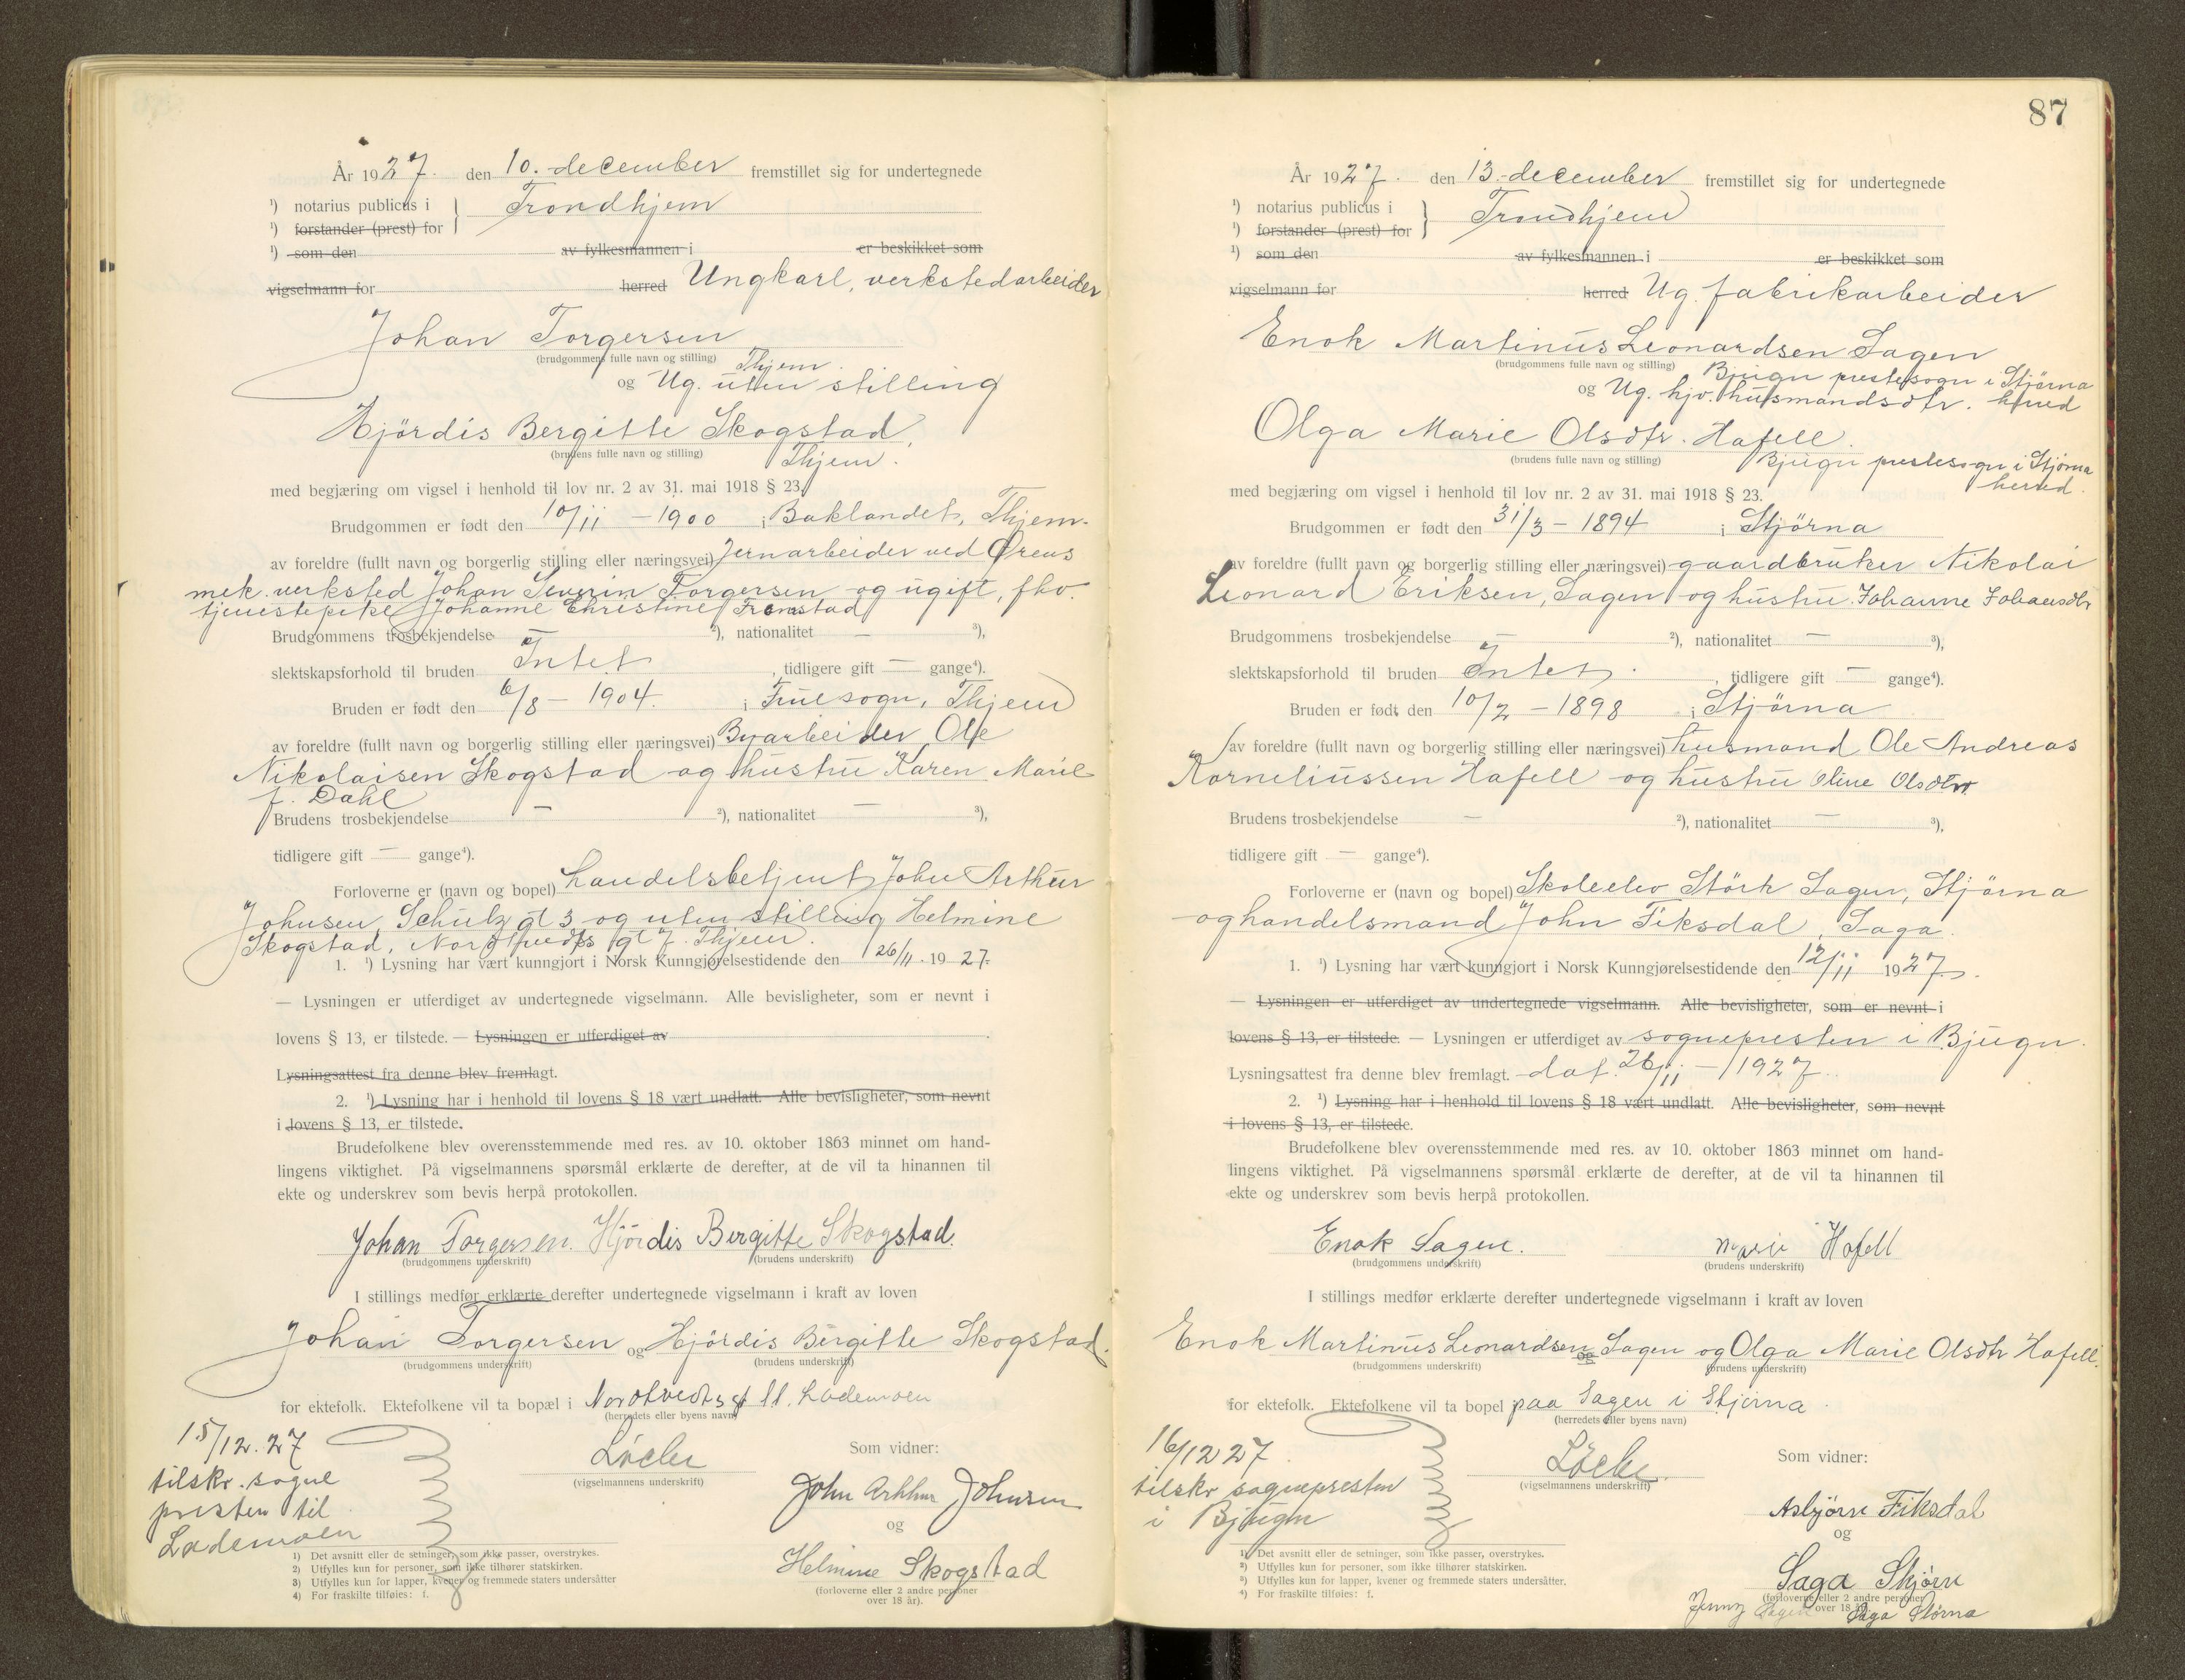 År 1927. den 10. december fremstillet sig for undertegnede
¹) notarius publicus i } Trondhjem
¹) forstander (prest) for
¹) som den av fylkesmannen i er beskikket som
vigselmann for herred Ungkarl, verkstedarbeider
Johan Torgersen
(brudgommens fulle navn og stilling) Thjem.
og Ug. uten stilling
Hjördis Bergitte Skogstad,
(brudens fulle navn og stilling) Thjem.
med begjæring om vigsel i henhold til lov nr. 2 av 31. mai 1918 § 23.
Brudgommen er født den 10/11 - 1900 i Baklandet, Thjem.
av foreldre (fullt navn og borgerlig stilling eller næringsvei) Jernarbeider ved Ørens
mek. verksted Johan Severin Torgersen og ugift, fhv.
tjenestepike Johanne Christine Fremstad
Brudgommens trosbekjendelse - ²), nationalitet - ³),
slektskapsforhold til bruden Intet, tidligere gift - gange⁴).
Bruden er født den 6/8 - 1904. i Fruesogn, Thjem
av foreldre (fullt navn og borgerlig stilling eller næringsvei) Byarbeider Ole
Nikolaisen Skogstad og hustru Karen Marie
f. Dahl
Brudens trosbekjendelse - ²), nationalitet - ³),
tidligere gift - gange⁴).
Forloverne er (navn og bopel) handelsbetjent John Arthur
Johnsen, Schulz gt 3 og uten stilling Helmine
Skogstad, Nordtvedts gt 7. Thjem.
1. ¹) Lysning har vært kunngjort i Norsk Kunngjørelsestidende den 26/11. 1927.
— Lysningen er utferdiget av undertegnede vigselmann. Alle bevisligheter, som er nevnt i
lovens § 13, er tilstede. — Lysningen er utferdiget av
Lysningsattest fra denne blev fremlagt.
2. ¹) Lysning har i henhold til lovens § 18 vært undlatt. Alle bevisligheter, som nevnt
i lovens § 13, er tilstede.
Brudefolkene blev overensstemmende med res. av 10. oktober 1863 minnet om hand-
lingens viktighet. På vigselmannens spørsmål erklærte de derefter, at de vil ta hinannen til
ekte og underskrev som bevis herpå protokollen.
Johan Torgersen. Hjördis Bergitte Skogstad.
(brudgommens underskrift) (brudens underskrift)
I stillings medfør erklærte derefter undertegnede vigselmann i kraft av loven
Johan Torgersen og Hjördis Bergitte Skogstad.
(brudgommens underskrift) (brudens underskrift)
for ektefolk. Ektefolkene vil ta bopæl i Nordtvedts gt 11. Lademoen
(herredets eller byens navn)
15/12.27
tilskr. sogne
presten til
Lademoen
(vigselmannens underskrift)
Som vidner:
John Arthur Johnsen
og
Helmine Skogstad
(forloverne eller 2 andre personer
over 18 år).
1) Det avsnitt eller de setninger, som ikke passer, overstrykes.
2) Utfylles kun for personer, som ikke tilhører statskirken.
3) Utfylles kun for lapper, kvener og fremmede staters undersåtter
4) For fraskilte tilføies: f.
87
År 1927. den 13. december fremstillet sig for undertegnede
¹) notarius publicus i } Trondhjem
¹) forstander (prest) for
¹) som den av fylkesmannen i er beskikket som
vigselmann for herred Ug. fabrikarbeider
Enok Martinus Leonardsen Sagen
(brudgommens fulle navn og stilling) Bjugn prestesogn i Stjörna
og Ug. hjv. husmandsdtr. herred
Olga Marie Olsdtr. Hafell.
(brudens fulle navn og stilling) Bjugn prestesogn i Stjörna
herred.
med begjæring om vigsel i henhold til lov nr. 2 av 31. mai 1918 § 23.
Brudgommen er født den 31/3 - 1894 i Stjörna
av foreldre (fullt navn og borgerlig stilling eller næringsvei) gaardbruker Nikolai
Leonard Eriksen, Sagen og hustru Johanne Johansdtr
Brudgommens trosbekjendelse - ²), nationalitet - ³),
slektskapsforhold til bruden Intet., tidligere gift - gange⁴).
Bruden er født den 10/2 - 1898 i Stjörna
av foreldre (fullt navn og borgerlig stilling eller næringsvei) husmand Ole Andreas
Korneliussen Hafell og hustru Oline Olsdtr
Brudens trosbekjendelse - ²), nationalitet - ³),
tidligere gift - gange⁴).
Forloverne er (navn og bopel) Skoleelev Störk Sagen, Stjörna
og handelsmand John Fiksdal, Saga.
1. ¹) Lysning har vært kunngjort i Norsk Kunngjørelsestidende den 12/11 1927.
— Lysningen er utferdiget av undertegnede vigselmann. Alle bevisligheter, som er nevnt i
lovens § 13, er tilstede. — Lysningen er utferdiget av sognepresten i Bjugn.
Lysningsattest fra denne blev fremlagt. dat. 26/11 - 1927.
2. ¹) Lysning har i henhold til lovens § 18 vært undlatt. Alle bevisligheter, som nevnt
i lovens § 13, er tilstede.
Brudefolkene blev overensstemmende med res. av 10. oktober 1863 minnet om hand-
lingens viktighet. På vigselmannens spørsmål erklærte de derefter, at de vil ta hinannen til
ekte og underskrev som bevis herpå protokollen.
Enok Sagen. Marie Hafell
(brudgommens underskrift) (brudens underskrift)
I stillings medfør erklærte derefter undertegnede vigselmann i kraft av loven
Enok Martinus Leonardsen Sagen og Olga Marie Olsdtr Hafell.
(brudgommens underskrift) (brudens underskrift)
for ektefolk. Ektefolkene vil ta bopel paa Sagen i Stjörna
(herredets eller byens navn)
16/12 27
tilskr sognepresten
i Bjugn
(vigselmannens underskrift)
Som vidner:
Asbjörn Fiksdal
og
Saga Stjörn
(forloverne eller 2 andre personer
over 18 år).
Jenny Sagen Saga Störna
1) Det avsnitt eller de setninger, som ikke passer, overstrykes.
2) Utfylles kun for personer, som ikke tilhører statskirken.
3) Utfylles kun for lapper, kvener og fremmede staters undersåtter.
4) For fraskilte tilføies: f.